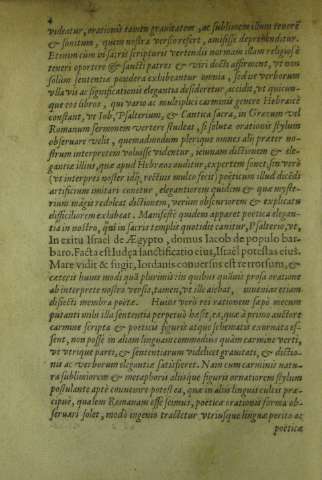 4
videatur, orationis tamen gravitatem, ac sublimem illum tenorē
& sonitum, quem nostra versio resert, amisisse deprehenditur.
Etenim cùm in sacris scripturis vertendis normam illam religiosè
teneri oportere & sancti patres & viri docti affirment, vt non
solùm sententiæ pondera exhibeantur omnia, sed ne verborum
vlla vis ac significationis elegantia desideretur, accidit, vt quicun-
que eos libros, qui vario ac multiplici carminis genere Hebraicè
constant, vt Iob, Psalterium, & Cantica sacra, in Græcum vel
Romanum sermonem vertere studeat, si solutæ orationis stylum
observare velit, quemadmodum plerique omnes alij præter no-
strum interpretem voluisse videntur, ieiunam dictionem & ele-
gantiæ illius, quæ apud Hebræos auditur, expertem sonet, sin verò
vt interpres noster idq́; rectius multo fecit, poëticum illud dicēdi
artificium imitari conetur, elegantiorem quidem & quæ myste-
rium magis redoleat dictionem, verùm obscuriorem & explicatu
difficiliorem exhibeat. Manifestè quidem apparet poëtica elegan-
tia in nostro, qui in sacris templis quotidie cantitur, Psalterio, vt,
In exitu Israel de Ægypto, domus Iacob de populo bar-
baro. Facta est Iudæa sanctificatio eius, Israel potestas eiuś.
Mare vidit & fugit, Iordanis conversus est retrorsum, &
ceteris huius modi quā plurimis: in quibus quāuis prosa oratione
ab interprete nostro versis, tamen, vt ille aiebat, inuenias etiam
disiecti membra poëtæ. Huius verò rei rationem sæpè mecum
putaui nulli illa sententia perpetuò hæsit, ea, quæ à primo auctore
carmine scripta & poëticis figuris atque schematis exornata es-
sent, non posse in aliam linguam commodius quàm carmine verti,
vt vtrique parti, & sententiarum videlicet gravitati, & dictio-
nis ac verborum elegantiæ satisfieret. Nam cum carminis natu-
ra sublimiorem & metaphoris aliisque figuris ornatiorem stylum
postulante aptè enuncere potest ea, quæ in aliis linguis cultis præ-
cipuè, qualem Romanam esse scimus, poëticæ orationis forma ob-
servari solet, modò ingenio tractetur vtriusque linguæ perito ac
poëticæ